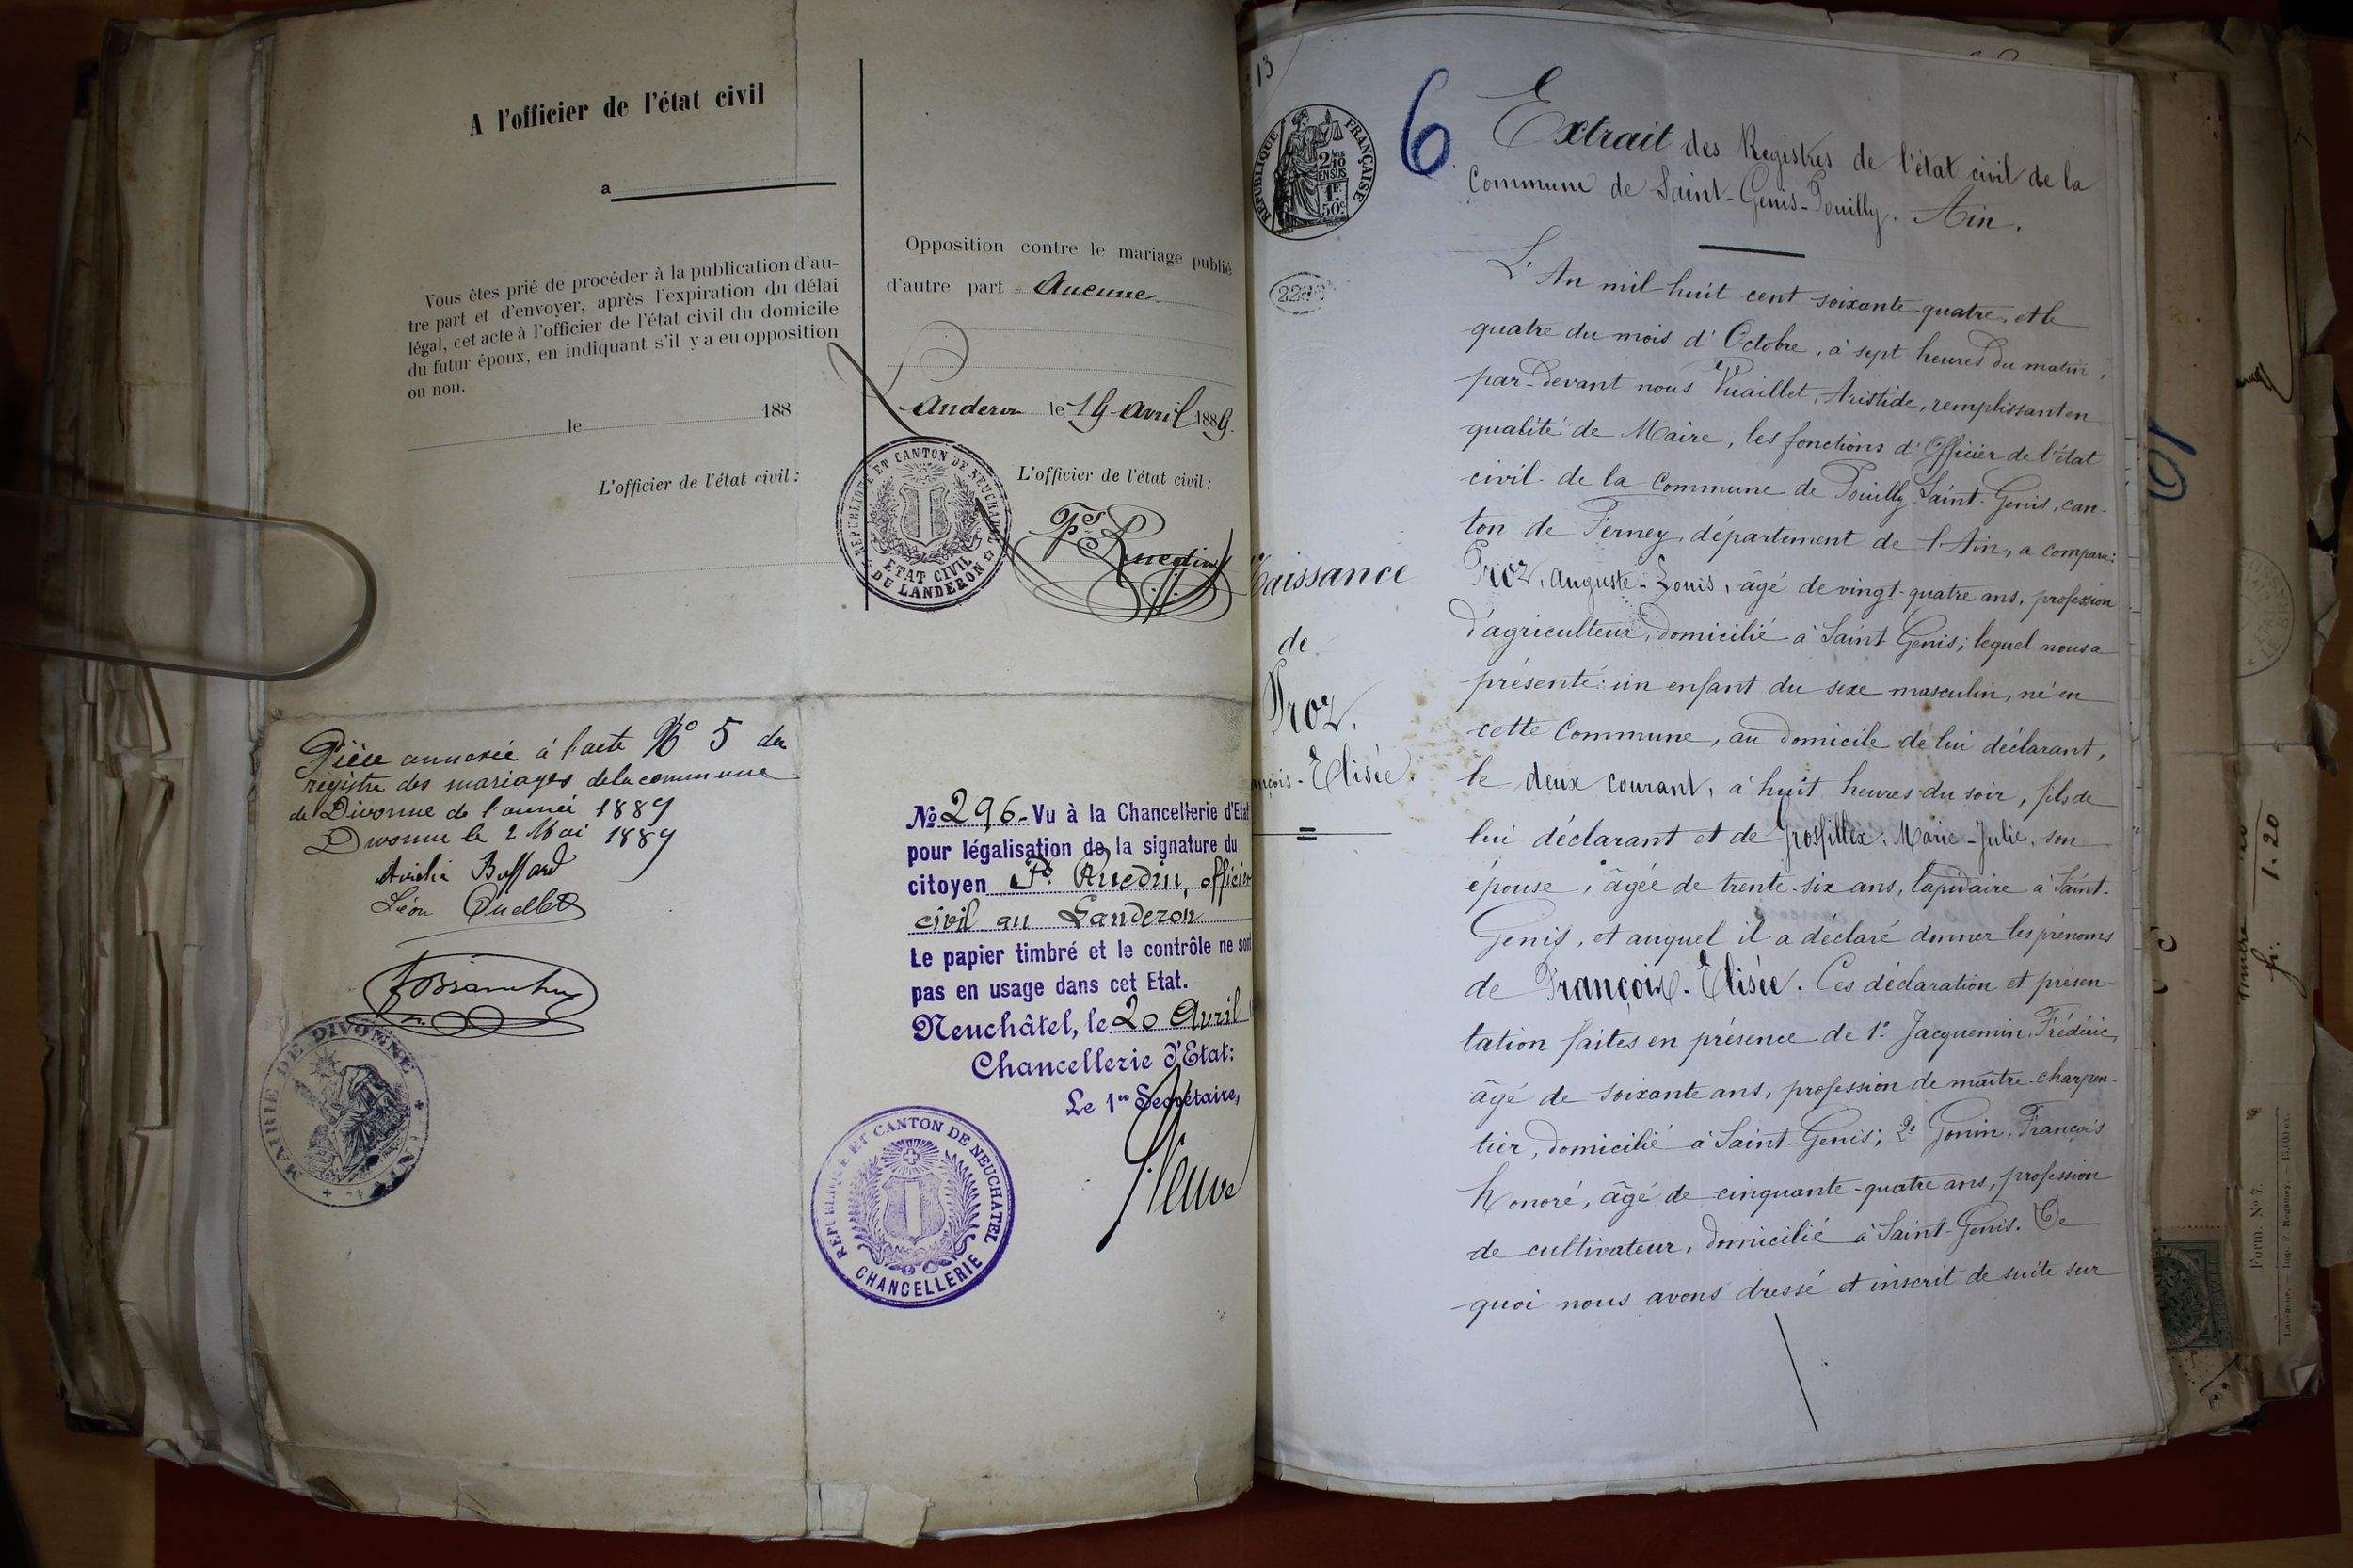 A l'officier de l'état civil
a
Vous êtes prié de procéder à la publication d'au-
tre part et d'envoyer, après l'expiration du délai
légal, cet acte à l'officier de l'état civil du domicile
du futur époux, en indiquant s'il y a eu opposition
ou non.
le 188
L'officier de l'état civil :
Opposition contre le mariage publié
d'autre part Aucune
Landeron le 19 Avril 1889.
L'officier de l'état civil :
REPUBLIQUE ET CANTON DE NEUCHATEL
ETAT CIVIL
DU LANDERON
Ruedin
Pièce annexée à l'acte No 5 du
registre des mariages de la commune
de Divonne de l'année 1889
Divonne le 2 Mai 1889
Léon
MAIRIE DE DIVONNE
No 296 - Vu à la Chancellerie d'Etat
pour légalisation de la signature du
citoyen Ruedin, officier
civil au Landeron
Le papier timbré et le contrôle ne sont
pas en usage dans cet Etat.
Neuchâtel, le 20 Avril
Chancellerie d'Etat:
Le 1er Secrétaire,
REPUBLIQUE ET CANTON DE NEUCHATEL
CHANCELLERIE
13
REPUBLIQUE FRANÇAISE
2/10
EN SUS
1F
50c
6
Extrait des Registres de l'état civil de la
Commune de Saint-Genis-Pouilly. Ain.
L'An mil huit cent soixante-quatre, et le
quatre du mois d'Octobre, à sept heures du matin,
par-devant nous Vuaillet, Aristide, remplissant en
qualité de Maire, les fonctions d'Officier de l'état
civil de la Commune de Pouilly-Saint-Genis, can-
ton de Ferney, département de l'Ain, a comparu:
Proz, Auguste-Louis, âgé de vingt-quatre ans, profession
d'agriculteur, domicilié à Saint Genis; lequel nous a
présenté: un enfant du sexe masculin, né en
cette Commune, au domicile de lui déclarant,
le deux courant, à huit heures du soir, fils de
lui déclarant et de Grosfillex, Marie-Julie, son
épouse, âgée de trente-six ans, lapidaire à Saint-
Genis, et auquel il a déclaré donner les prénoms
de François-Elisée. Ces déclaration et présen-
tation faites en présence de 1° Jacquemin, Frédéric,
âgé de soixante ans, profession de maître-charpen-
tier, domicilié à Saint-Genis; 2° Gonin, François
Honoré, âgé de cinquante-quatre ans, profession
de cultivateur, domicilié à Saint-Genis. De
quoi nous avons dressé et inscrit de suite sur
Naissance
de
Proz.
François-Elisée.
10
1.20
Form. No 7.